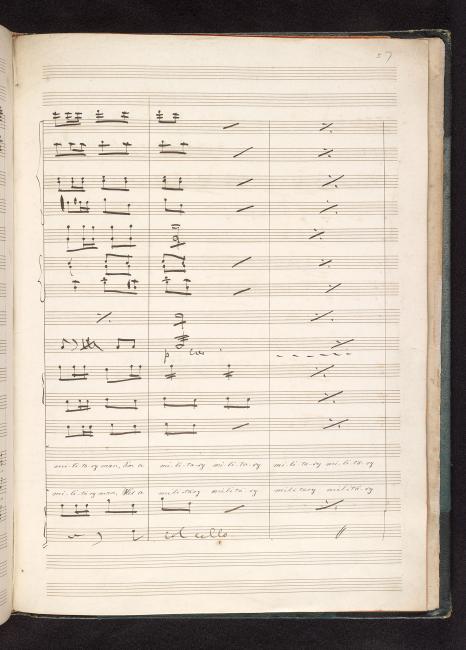 57
p cres
mi-li-ta-ry man, I'm a mi-li-ta-ry mi-li-ta-ry mi-li-ta-ry mi-li-ta-ry
mi-li-ta-ry man, He's a mili-tary mili-ta-ry mili-tary mili-ta-ry
col cello